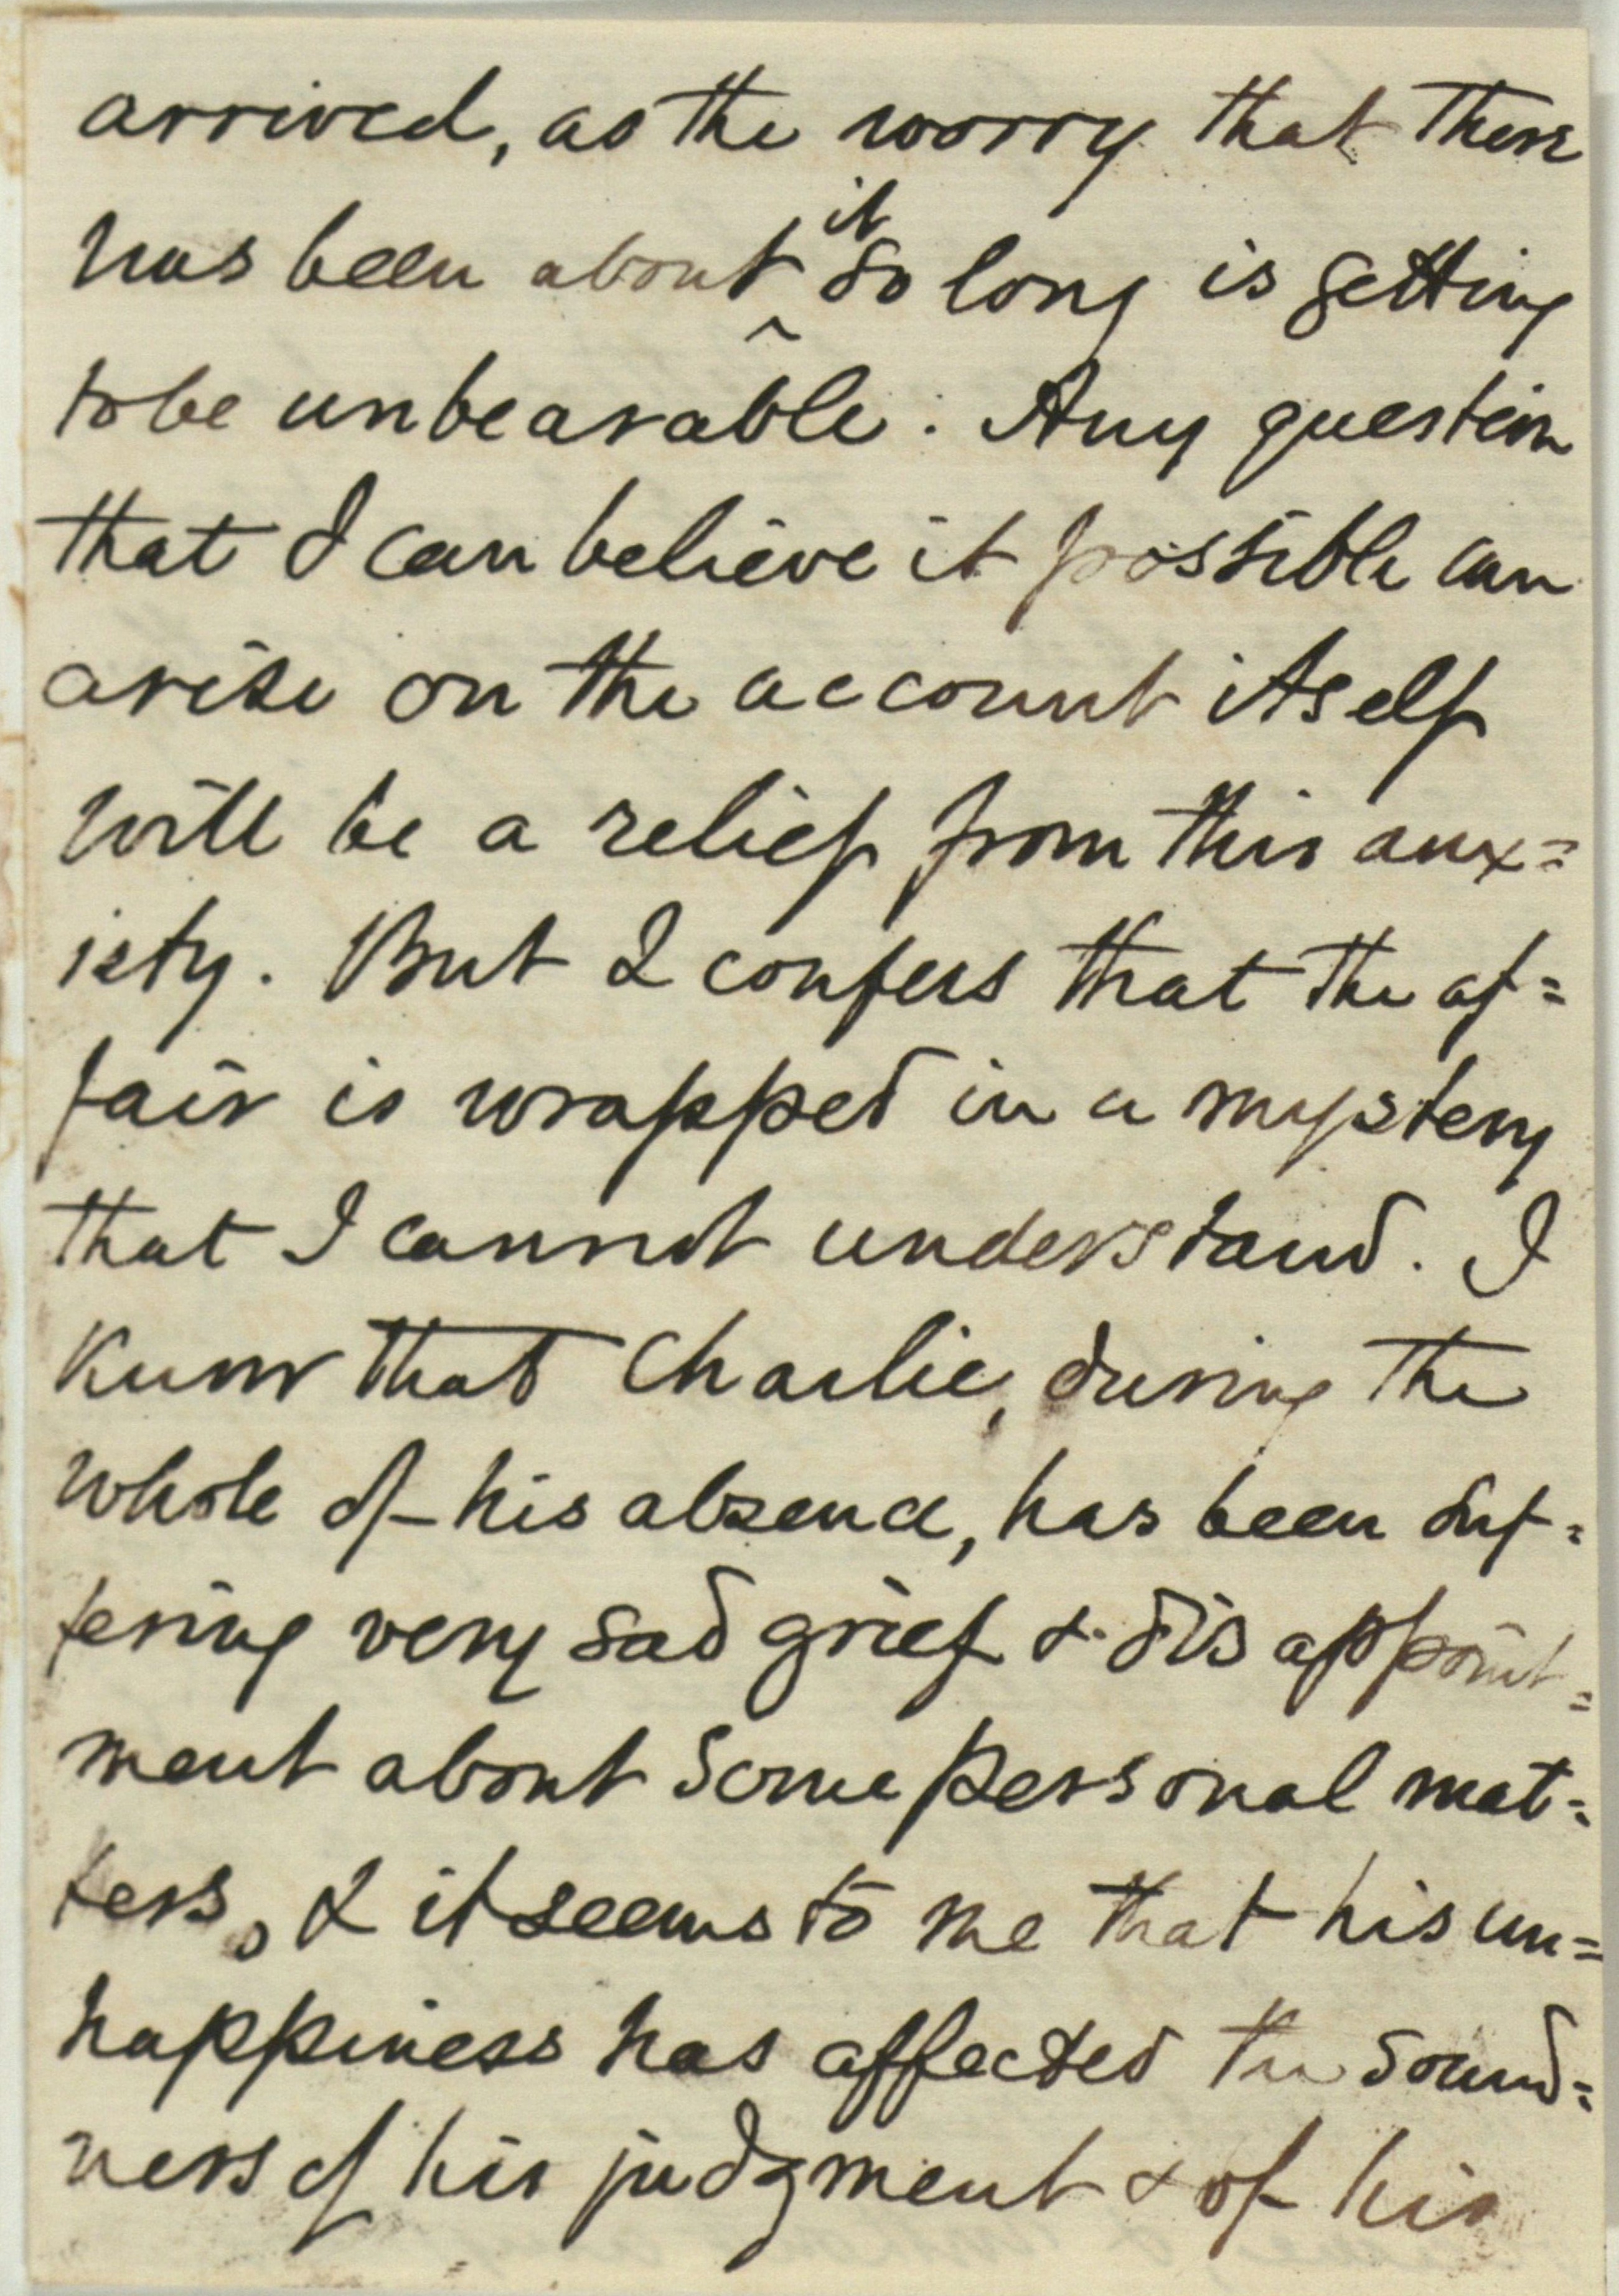 arrived, as the worry that there
has been about it so long is getting
to be unbearable. Any question
that I can believe it possible can
arise on the account itself
will be a relief from this anx=
iety. But I confess that the af=
fair is wrapped in a mystery
that I cannot understand. I
know that Charlie, during the
whole of his absence, has been suf=
fering very sad grief & disappoint=
ment about some personal mat=
ters, & it seems to me that his un=
happiness has affected the sound=
ness of his judgment & of his